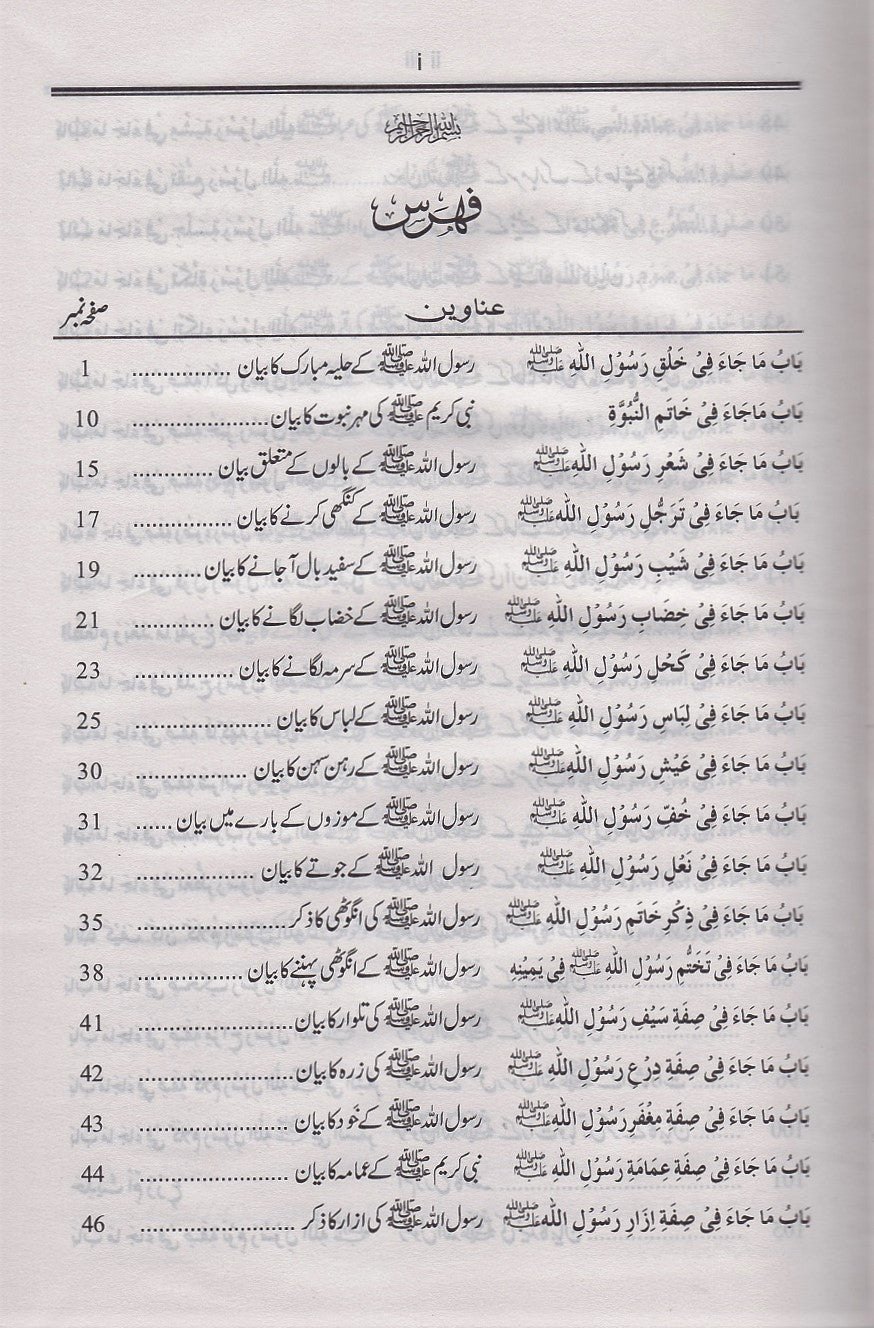 i
بسم اللہ الرحمن الرحیم
فہرس
عناوین صفحہ نمبر
بَابُ مَا جَاءَ فِیْ خَلْقِ رَسُوْلِ اللّٰهِ ﷺ رسول اللہ ﷺ کے حلیہ مبارک کا بیان .............. 1
بَابُ مَاجَاءَ فِیْ خَاتَمِ النُّبُوَّةِ نبی کریم ﷺ کی مہر نبوت کا بیان .................... 10
بَابُ مَا جَاءَ فِیْ شَعْرِ رَسُوْلِ اللّٰهِ ﷺ رسول اللہ ﷺ کے بالوں کے متعلق بیان ............ 15
بَابُ مَا جَاءَ فِیْ تَرَجُّلِ رَسُوْلِ اللّٰهِ ﷺ رسول اللہ ﷺ کے کنگھی کرنے کا بیان .............. 17
بَابُ مَا جَاءَ فِیْ شَيْبِ رَسُوْلِ اللّٰهِ ﷺ رسول اللہ ﷺ کے سفید بال آجانے کا بیان .......... 19
بَابُ مَا جَاءَ فِیْ خِضَابِ رَسُوْلِ اللّٰهِ ﷺ رسول اللہ ﷺ کے خضاب لگانے کا بیان ............ 21
بَابُ مَا جَاءَ فِیْ كَحْلِ رَسُوْلِ اللّٰهِ ﷺ رسول اللہ ﷺ کے سرمہ لگانے کا بیان .............. 23
بَابُ مَا جَاءَ فِیْ لِبَاسِ رَسُوْلِ اللّٰهِ ﷺ رسول اللہ ﷺ کے لباس کا بیان .................... 25
بَابُ مَا جَاءَ فِیْ عَيْشِ رَسُوْلِ اللّٰهِ ﷺ رسول اللہ ﷺ کے رہن سہن کا بیان ................ 30
بَابُ مَا جَاءَ فِیْ خُفِّ رَسُوْلِ اللّٰهِ ﷺ رسول اللہ ﷺ کے موزوں کے بارے میں بیان ...... 31
بَابُ مَا جَاءَ فِیْ نَعْلِ رَسُوْلِ اللّٰهِ ﷺ رسول اللہ ﷺ کے جوتے کا بیان ................. 32
بَابُ مَا جَاءَ فِیْ ذِكْرِ خَاتَمِ رَسُوْلِ اللّٰهِ ﷺ رسول اللہ ﷺ کی انگوٹھی کا ذکر ...................... 35
بَابُ مَا جَاءَ فِیْ تَخَتُّمِ رَسُوْلِ اللّٰهِ ﷺ فِیْ يَمِيْنِهِ رسول اللہ ﷺ کے انگوٹھی پہننے کا بیان ............... 38
بَابُ مَا جَاءَ فِیْ صِفَةِ سَيْفِ رَسُوْلِ اللّٰهِ ﷺ رسول اللہ ﷺ کی تلوار کا بیان ...................... 41
بَابُ مَا جَاءَ فِیْ صِفَةِ دِرْعِ رَسُوْلِ اللّٰهِ ﷺ رسول اللہ ﷺ کی زرہ کا بیان ...................... 42
بَابُ مَا جَاءَ فِیْ صِفَةِ مِغْفَرِ رَسُوْلِ اللّٰهِ ﷺ رسول اللہ ﷺ کے خَود کا بیان .................... 43
بَابُ مَا جَاءَ فِیْ صِفَةِ عِمَامَةِ رَسُوْلِ اللّٰهِ ﷺ نبی کریم ﷺ کے عمامہ کا بیان ..................... 44
بَابُ مَا جَاءَ فِیْ صِفَةِ اِزَارِ رَسُوْلِ اللّٰهِ ﷺ رسول اللہ ﷺ کی ازار کا ذکر ...................... 46